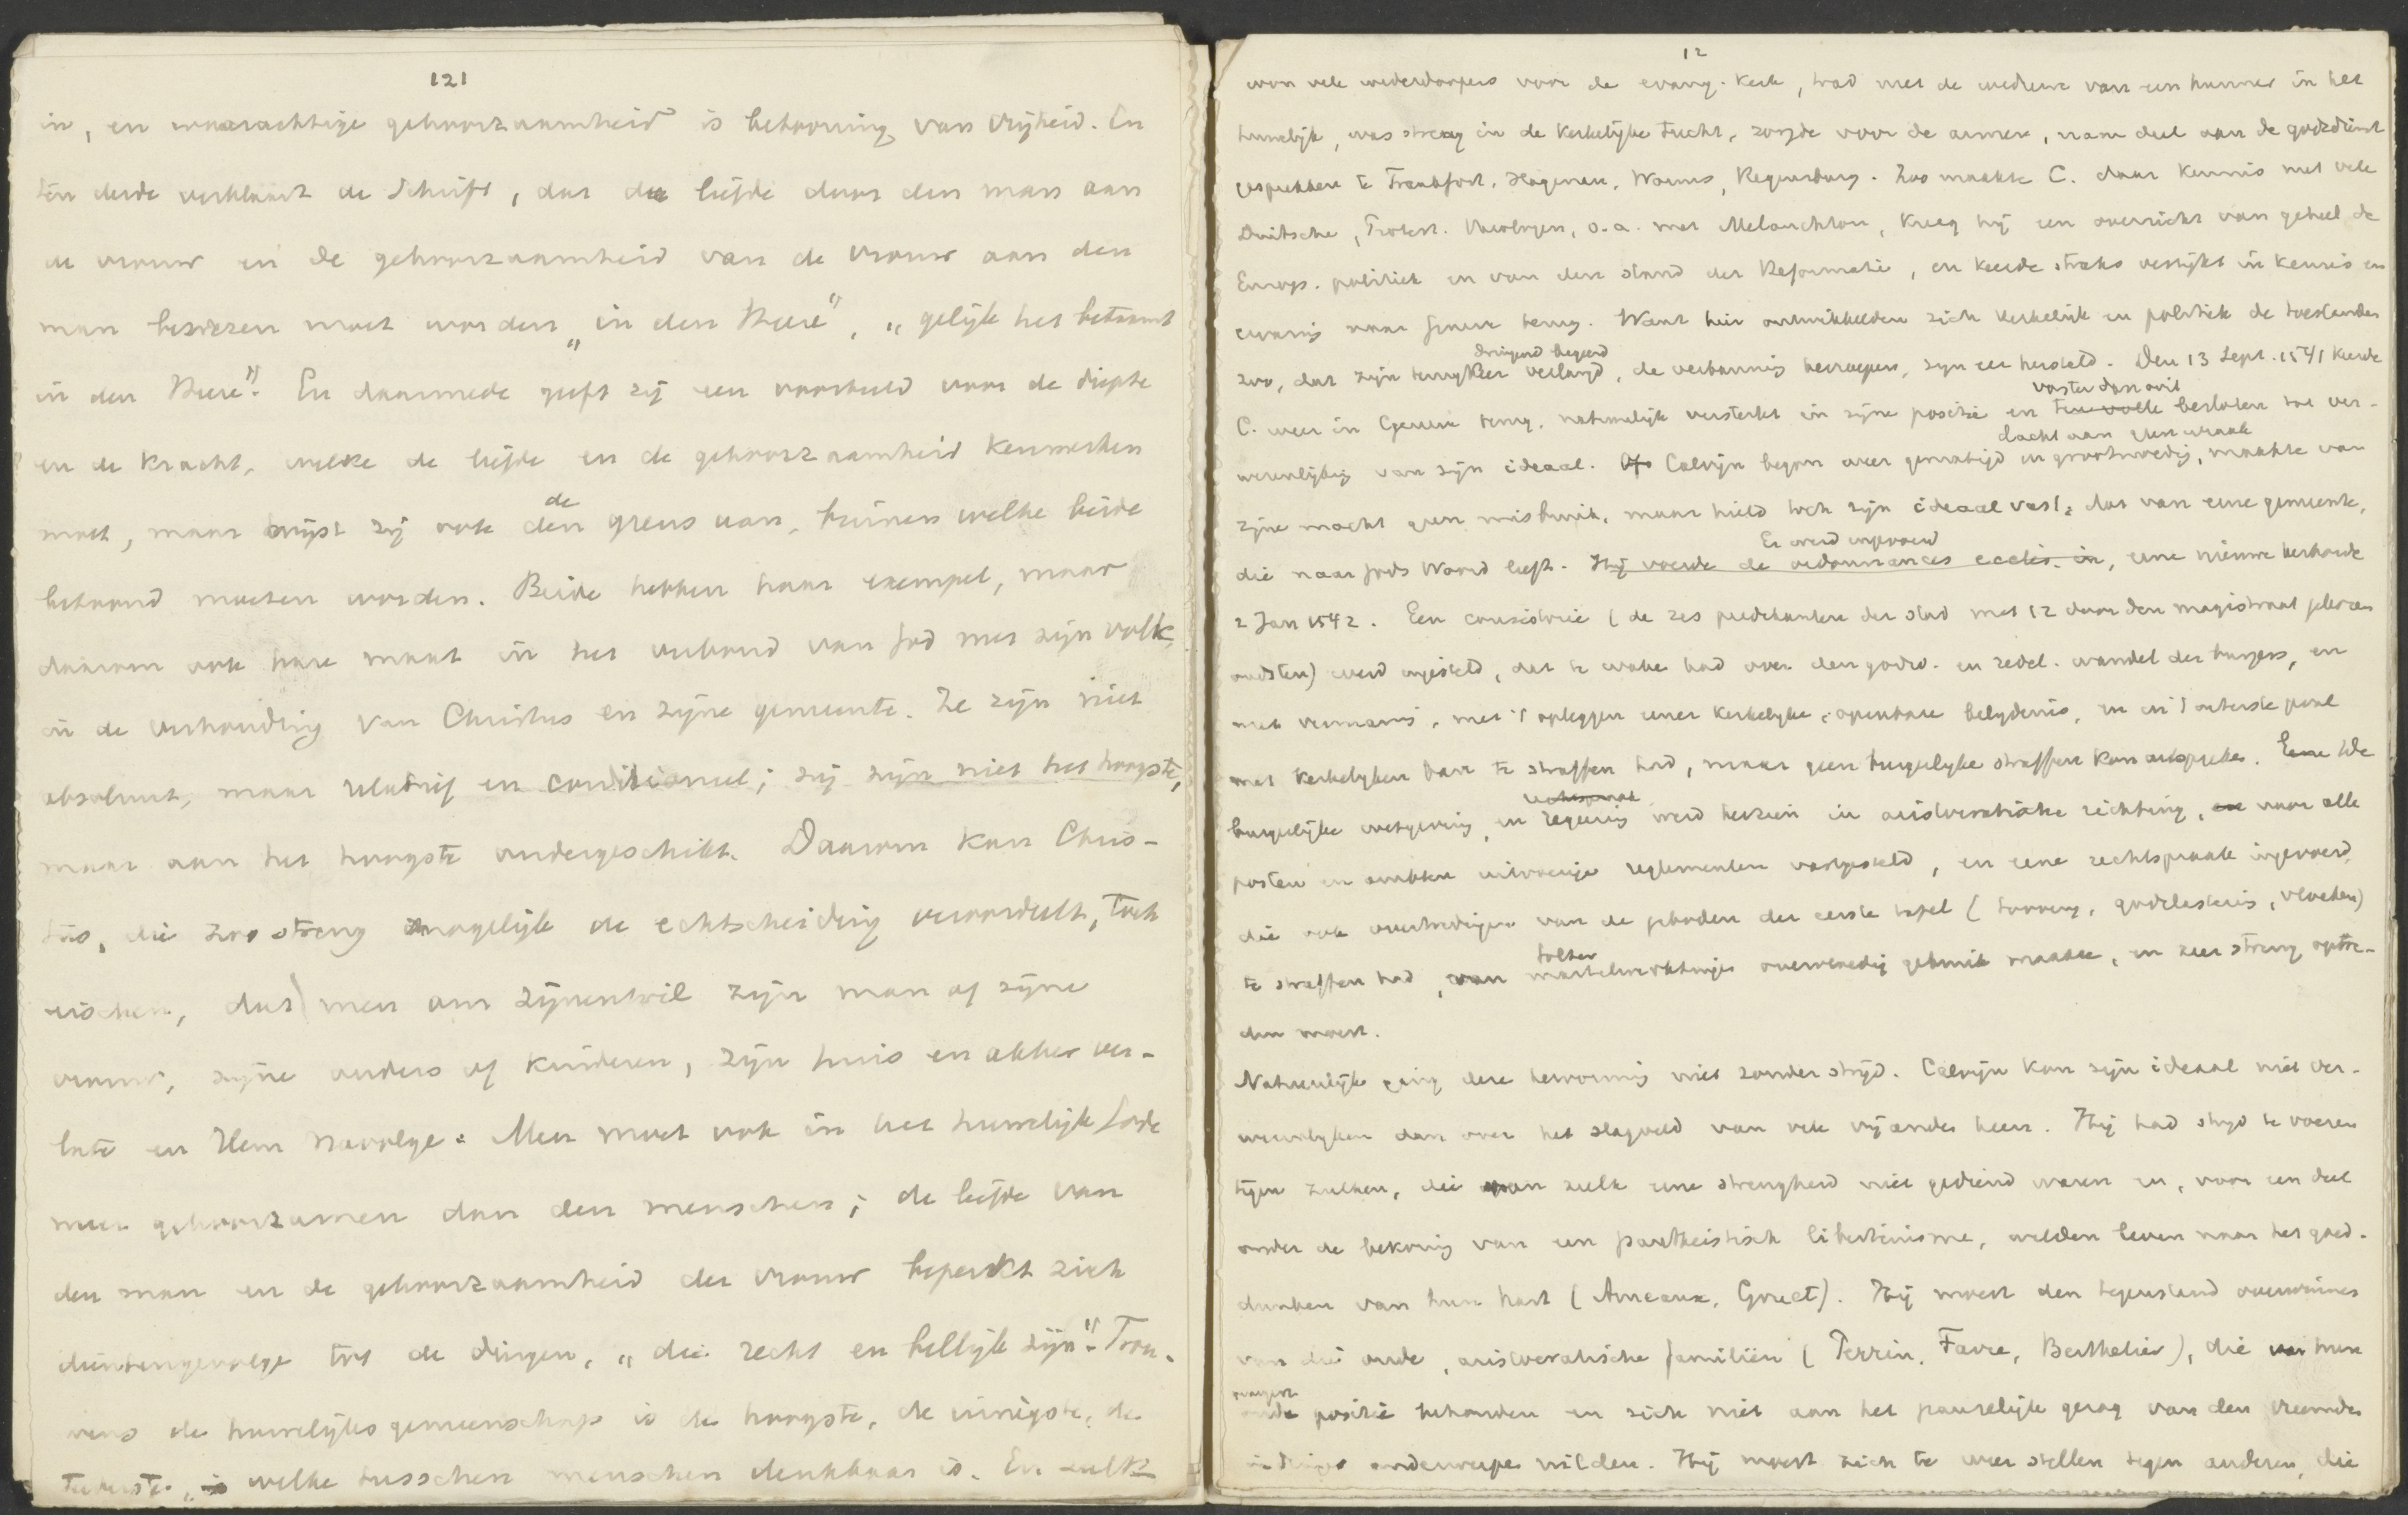 121
in, en waarachtige gehoorzaamheid is betooning van vrijheid. En
ten derde verklaart de Schrift, dat de liefde door den man aan
de vrouw en de gehoorzaamheid van de vrouw aan den
man bewezen moet worden „in den Heere", „gelijk het betaamt
in den Heere". En daarmede geeft zij een voorbeeld voor de diepte
en de kracht, welke de liefde en de gehoorzaamheid kenmerken
moet, maar wijst zij ook de den grens aan, binnen welke beide
betoond moeten worden. Beide hebben haar exempel, maar
daarom ook hare maat in het verbond van God met zijn volk,
in de verhouding van Christus en zijne gemeente. Ze zijn niet
absoluut, maar relatief en conditioneel; zij zijn niet het hoogste,
maar aan het hoogste ondergeschikt. Daarom kan Chris-
tus, die zoo streng mogelijk de echtscheiding veroordeelt, toch
eischen, dat men om zijnentwil zijn man of zijne
vrouw, zijne ouders of kinderen, zijn huis en akker ver-
late en Hem navolge. Men moet ook in het huwelijk Gode
meer gehoorzamen dan den menschen; de liefde van
den man en de gehoorzaamheid der vrouw beperkt zich
dientengevolge tot de dingen, „die recht en billijk zijn". Trou-
wens de huwelijksgemeenschap is de hoogste, de innigste, de
teerste, welke tusschen menschen denkbaar is. En zulk
12
won vele wederdoopers voor de evang. kerk, trad met de weduwe van een hunner in het
huwelijk, was streng in de kerkelijke tucht, zorgde voor de armen, nam deel aan de godsdienst
gesprekken te Frankfort, Hagenau, Worms, Regensburg. Zoo maakte C. daar kennis met vele
Duitsche, Protest. theologen, o.a. met Melanchton, kreeg hij een overzicht van geheel de
Europ. politiek en van den stand der Reformatie, en keerde straks verrijkt in kennis en
ervaring naar Geneve terug. Want hier ontwikkelden zich kerkelijk en politiek de toestanden
dringend begeerd
zoo, dat zijn terugkeer verlangd, de verbanning herroepen, zijn eer hersteld. Den 13 Sept. 1541 keerde
vaster dan ooit
C. weer in Geneve terug, natuurlijk versterkt in zijne positie en ten volle besloten tot ver-
dacht aan geen wraak
wezenlijking van zijn ideaal. Calvijn begon zeer gematigd en grootmoedig, maakte van
zijne macht geen misbruik, maar hield toch zijn ideaal vast, dat van eene gemeente,
Er werd ingevoerd
die naar Gods Woord leeft. Hij voerde de ordonnances eccles. in, eene nieuwe kerkorde
2 Jan 1542. Een consistorie (de zes predikanten der stad met 12 door den magistraat gekozen
oudsten) werd ingesteld, dat te waken had over den godsd. en zedel. wandel der burgers, en
met vermaning, met 't opleggen eener kerkelijke, openbare belijdenis, en in 't uiterste geval
met kerkelijken ban te straffen had, maar geen burgerlijke straffen kon uitspreken. Eene De
rechtspraak
burgerlijke wetgeving en regeering werd herzien in aristocratische richting, voor alle
posten en ambten uitvoerige reglementen vastgesteld, en eene rechtspraak ingevoerd,
die ook overtredingen van de geboden der eerste tafel (toovery, godslastering, vloeken)
folter
te straffen had, van martelwerktuigen overvloedig gebruik maakte, en zeer streng optre-
den moest.
Natuurlijk ging deze hervorming niet zonder strijd. Calvijn kon zijn ideaal niet ver-
wezenlijken dan over het slagveld van vele vijanden heen. Hij had strijd te voeren
tegen zulken, die van zulk eene strengheid niet gediend waren en, voor een deel
onder de bekoring van een pantheistisch libertinisme, wilden leven naar het goed-
dunken van hun hart (Ameaux, Gruet). Hij moest den tegenstand overwinnen
van die oude, aristocratische familiën (Perrin, Favre, Berthelier), die hun
oude positie behouden en zich niet aan het pauselijk gezag van den vreemden
indringer onderwerpen wilden. Hij moest zich te weer stellen tegen anderen, die